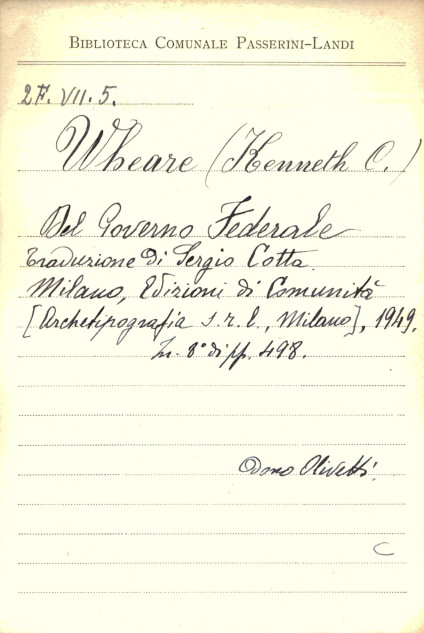 BIBLIOTECA COMUNALE PASSERINI-LANDI
2F. VII. 5.
Wheare (Kenneth C.)
Del Governo Federale
Traduzione di Sergio Cotta.
Milano, Edizioni di Comunità
[Archetipografia s.r.l., Milano], 1949.
In-8° di pp. 498.
Dono Olivetti.
C